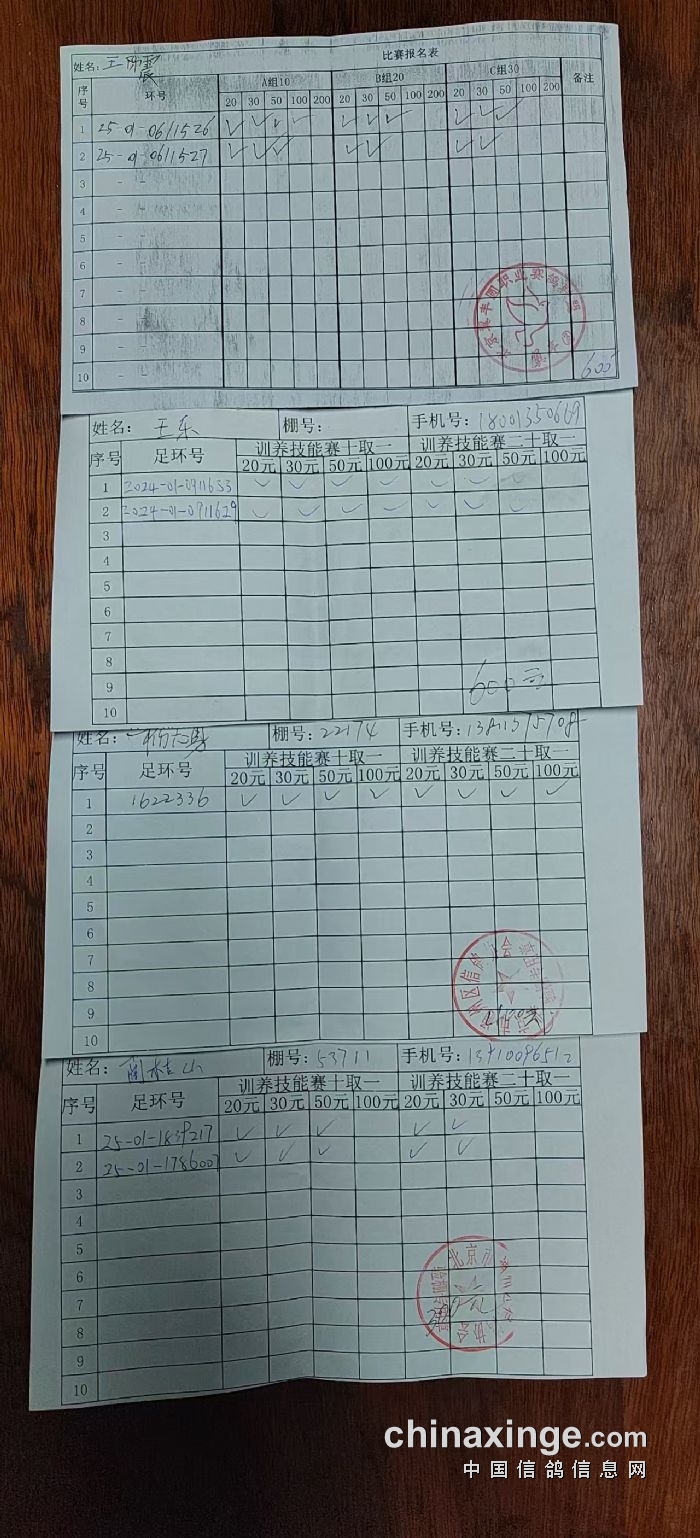 比赛报名表
姓名:
序号 环号 A组10 B组20 C组30 备注
20 30 50 100 200 20 30 50 100 200 20 30 50 100 200
1 25-01-0611526 ✓ ✓ ✓ ✓ ✓ ✓ ✓ ✓ ✓ ✓
2 25-01-0611527 ✓ ✓ ✓ ✓ ✓ ✓ ✓
3 - -
4 - -
5 - -
6 - -
7 - -
8 - -
9 - -
10 - -
600
姓名: 王东 棚号: 手机号:
序号 足环号 训养技能赛十取一 训养技能赛二十取一
20元 30元 50元 100元 20元 30元 50元 100元
1 2024-01-0911633 ✓ ✓ ✓ ✓ ✓ ✓ ✓
2 2024-01-0911629 ✓ ✓ ✓ ✓ ✓ ✓ ✓
3
4
5
6
7
8
9
10
600元
姓名: 棚号: 22174 手机号:
序号 足环号 训养技能赛十取一 训养技能赛二十取一
20元 30元 50元 100元 20元 30元 50元 100元
1 1622336 ✓ ✓ ✓ ✓ ✓ ✓ ✓ ✓
2
3
4
5
6
7
8
9
10
姓名: 棚号: 53711 手机号:
序号 足环号 训养技能赛十取一 训养技能赛二十取一
20元 30元 50元 100元 20元 30元 50元 100元
1 25-01-1839217 ✓ ✓ ✓ ✓ ✓
2 25-01-1786007 ✓ ✓ ✓ ✓ ✓
3
4
5
6
7
8
9
10
北京
chinaxinge.com
中国信鸽信息网